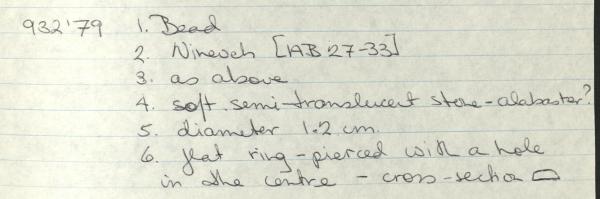 932'79 1. Bead
2. Nineveh [IAB 27-33]
3. as above
4. soft semi-translucent stone - alabaster?
5. diameter 1.2 cm.
6. flat ring - pierced with a hole
in the centre - cross-section